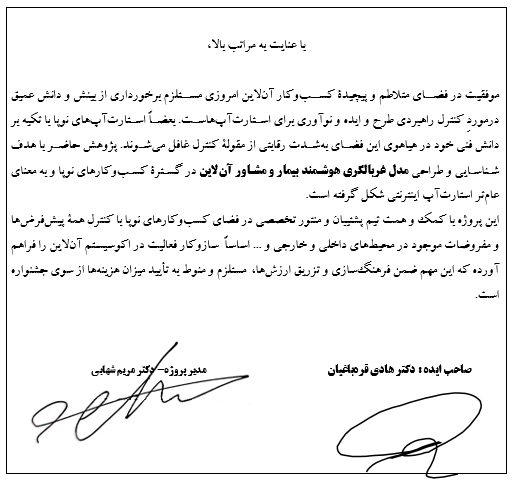 با عنایت به مراتب بالا،
موفقیت در فضای متلاطم و پیچیدۀ کسب‌وکار آن‌لاین امروزی مستلزم برخورداری از بینش و دانش عمیق
درمورد کنترل راهبردی طرح و ایده و نوآوری برای استارت‌آپ‌هاست. بعضاً استارت‌آپ‌های نوپا با تکیه بر
دانش فنی خود در هیاهوی این فضای به‌شدت رقابتی از مقولۀ کنترل غافل می‌شوند. پژوهش حاضر با هدف
شناسایی و طراحی مدل غربالگری هوشمند بیمار و مشاور آن‌لاین در گسترۀ کسب‌وکارهای نوپا و به معنای
عام‌تر استارت‌آپ اینترنتی شکل گرفته است.
این پروژه با کمک و همت تیم پشتیبان و منتور تخصصی در فضای کسب‌وکارهای نوپا با کنترل همۀ پیش‌فرض‌ها
و مفروضات موجود در محیط‌های داخلی و خارجی و ... اساساً سازوکار فعالیت در اکوسیستم آن‌لاین را فراهم
آورده که این مهم ضمن فرهنگ‌سازی و تزریق ارزش‌ها، مستلزم و منوط به تأیید میزان هزینه‌ها از سوی جشنواره
است.
صاحب ایده : دکتر هادی قره‌باغیان
مدیر پروژه– دکتر مریم شهابی